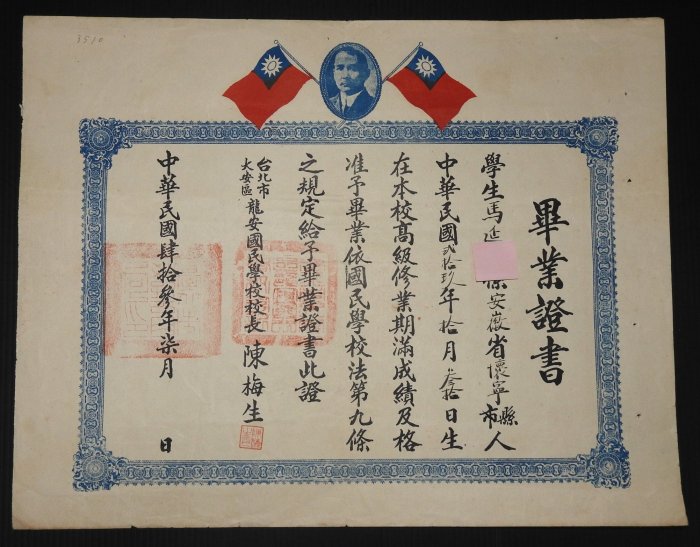 3510
畢業證書
學生馬 係安徽省懷寧縣市人
中華民國貳拾玖年拾月叁拾日生
在本校高級修業期滿成績及格
准予畢業依國民學校法第九條
之規定給予畢業證書此證
台北市大安區龍安國民學校校長陳梅生
中華民國肆拾參年柒月 日